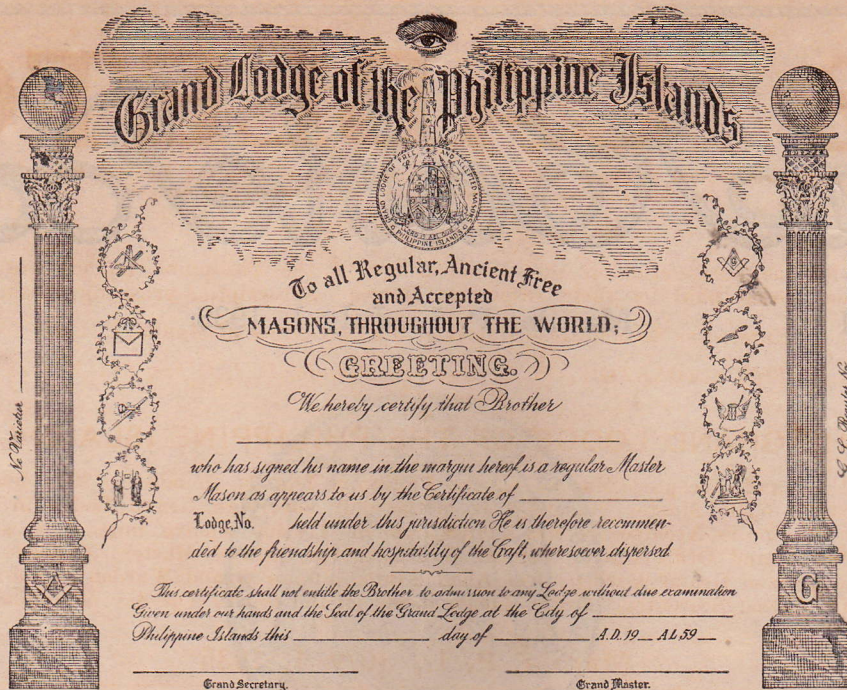 Grand Lodge of the Philippine Islands
To all Regular, Ancient Free
and Accepted
MASONS, THROUGHOUT THE WORLD;
GREETING.
We hereby certify that Brother
who has signed his name in the margin hereof is a regular Master
Mason as appears to us by the Certificate of
Lodge, No. held under this jurisdiction He is therefore recommen-
ded to the friendship and hospitality of the Craft, wheresoever dispersed
This certificate shall not entitle the Brother to admission to any Lodge without due examination
Given under our hands and the Seal of the Grand Lodge at the City of
Philippine Islands this day of A.D. 19 AL 59
Grand Secretary. Grand Master.
Ne Varietur
G
PHILIPPINE ISLANDS